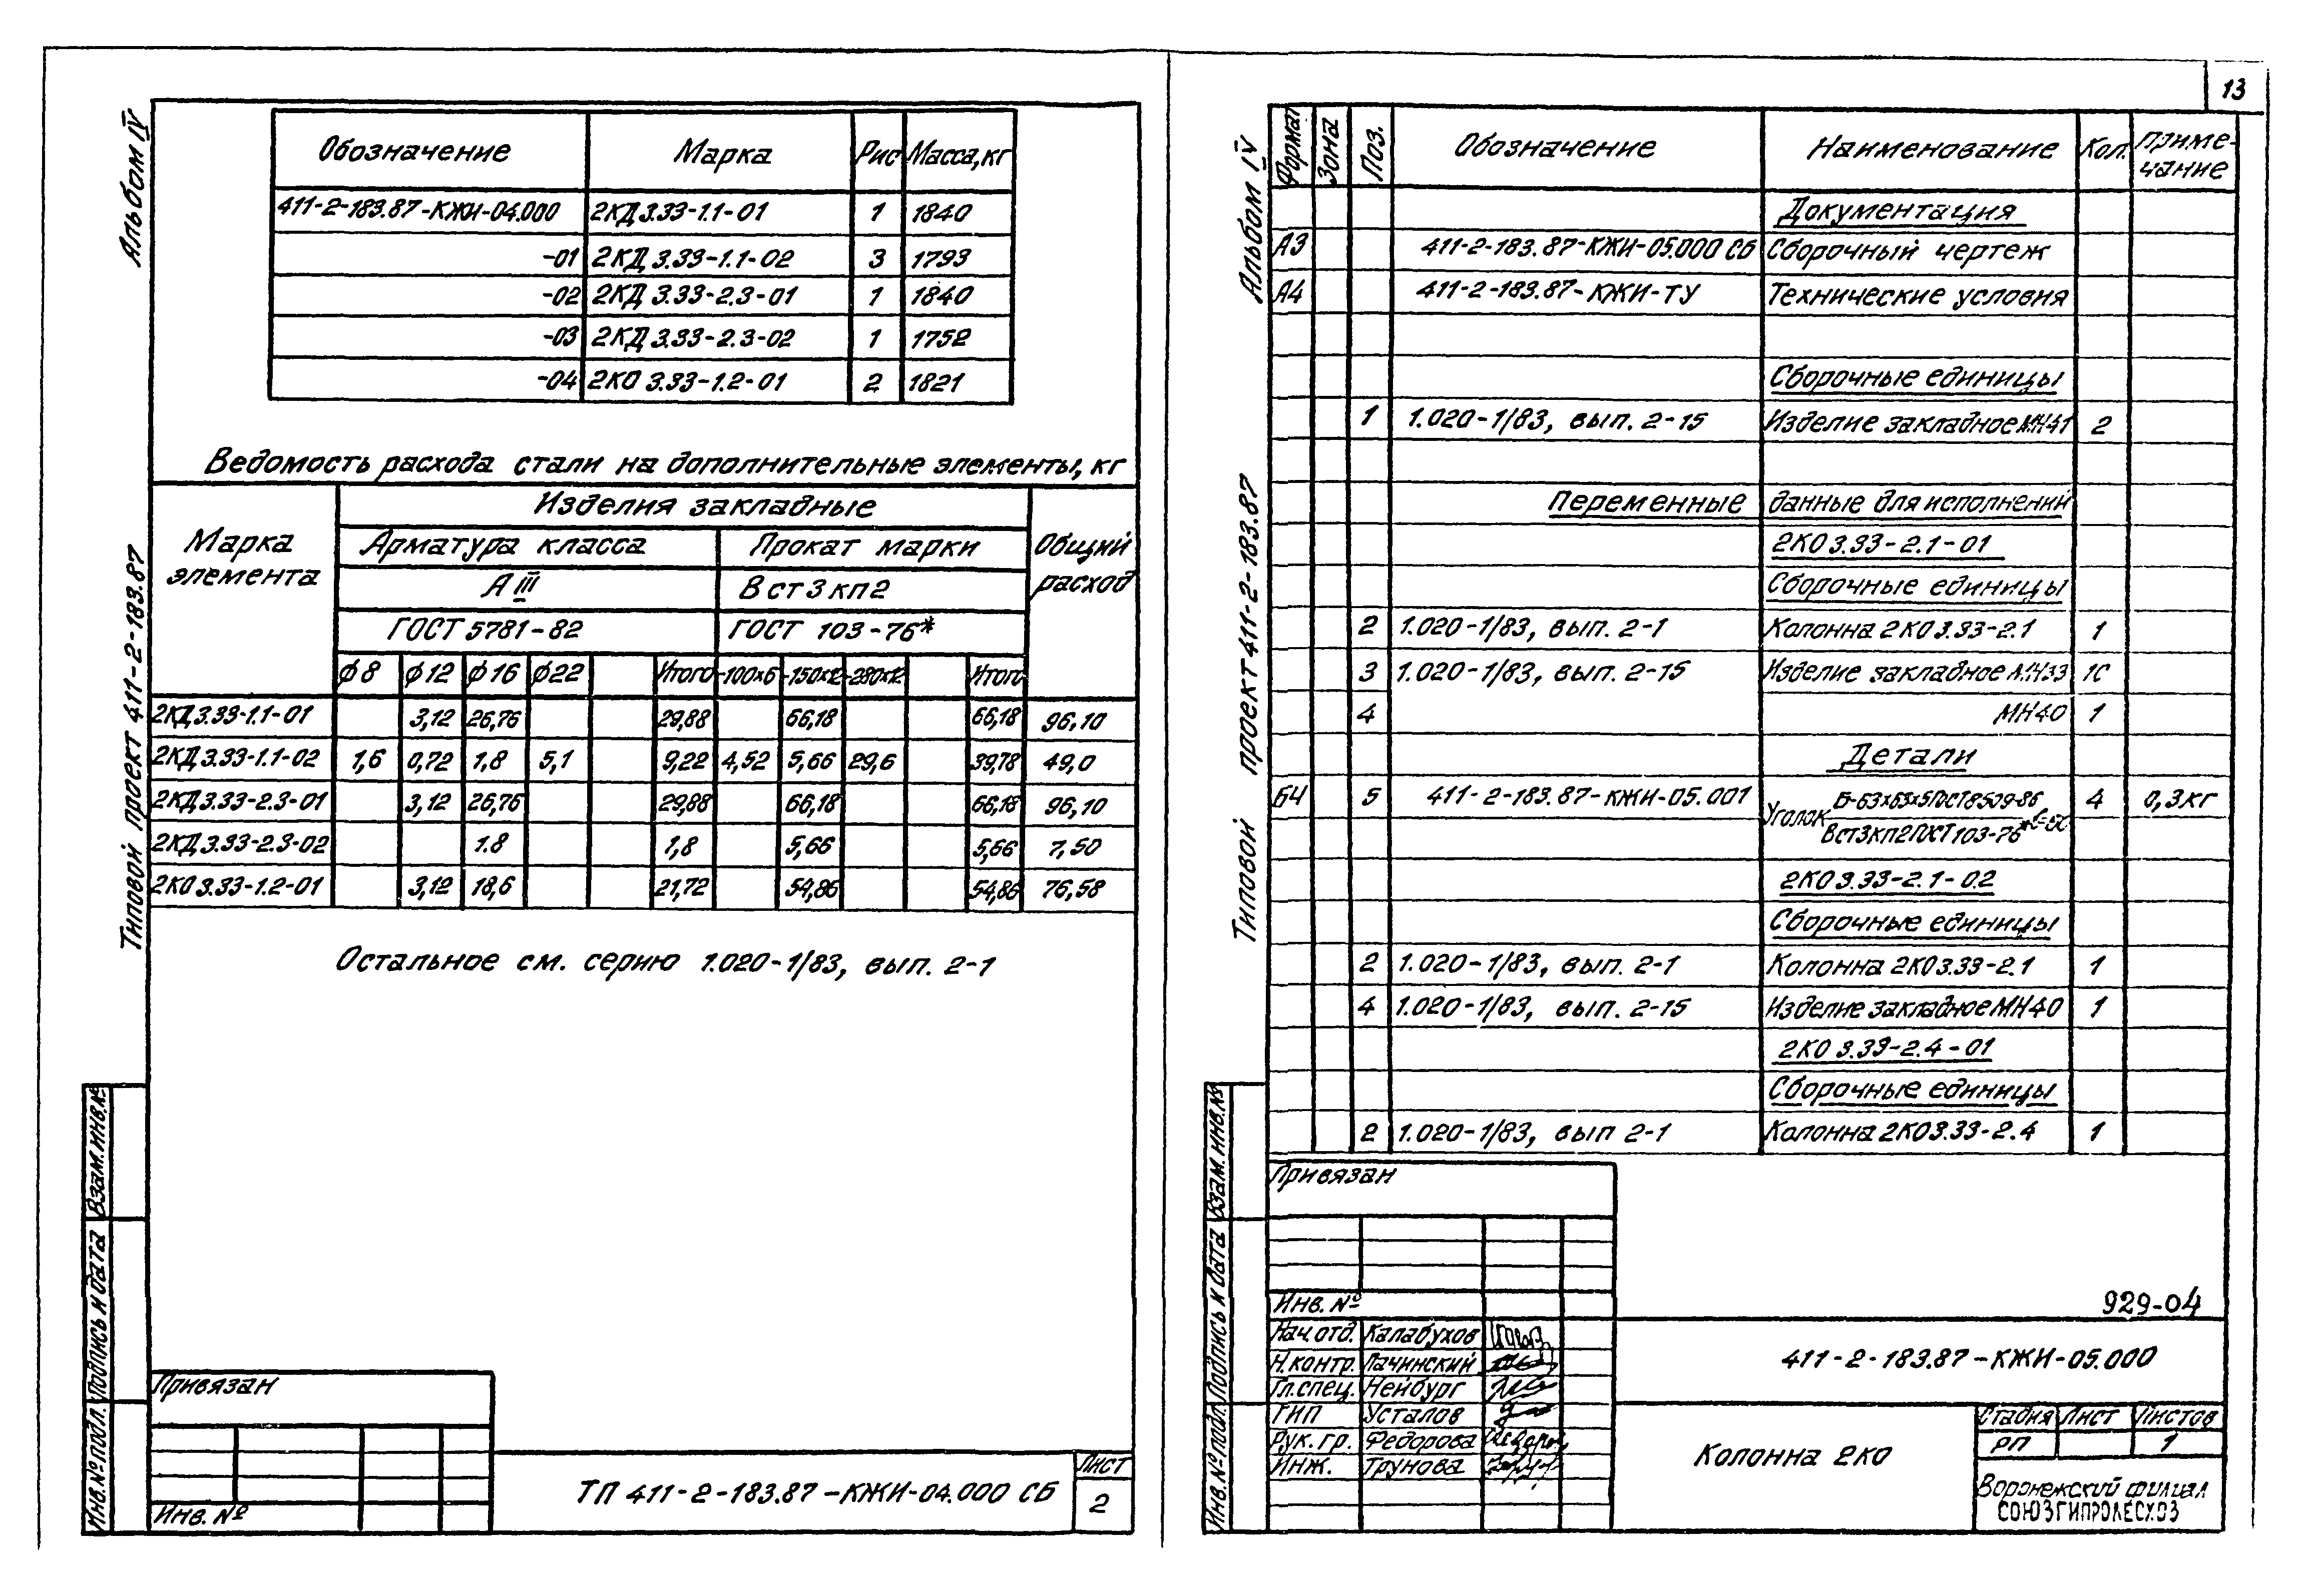 Альбом IV
Типовой проект 411-2-183.87
Обозначение Марка Рис Масса,кг
411-2-183.87-КЖИ-04.000 2КД3.33-1.1-01 1 1840
-01 2КД3.33-1.1-02 3 1793
-02 2КД3.33-2.3-01 1 1840
-03 2КД3.33-2.3-02 1 1752
-04 2КО3.33-1.2-01 2 1821
Ведомость расхода стали на дополнительные элементы, кг
Марка элемента Изделия закладные Общий расход
Арматура класса Прокат марки
А III В ст3кп2
ГОСТ 5781-82 ГОСТ 103-76*
ϕ8 ϕ12 ϕ16 ϕ22 Итого -100х6 -150х12 -280х12 Итого
2КД3.33-1.1-01 3,12 26,76 29,88 66,18 66,18 96,10
2КД3.33-1.1-02 1,6 0,72 1.8 5,1 9,22 4,52 5,66 29,6 39,78 49,0
2КД3.33-2.3-01 3,12 26,76 29,88 66,18 66,18 96,10
2КД3.33-2.3-02 1.8 1,8 5,66 5,66 7,50
2КО3.33-1.2-01 3,12 18,6 21,72 54,86 54,86 76,58
Остальное см. серию 1.020-1/83, вып. 2-1
Взам.инв.№
Подпись и дата
Инв.№подл.
Привязан
Инв. №
ТП 411-2-183.87-КЖИ-04.000 СБ
Лист
2
13
Альбом IV
Типовой проект 411-2-183.87
Формат Зона Поз. Обозначение Наименование Кол. Приме-
чание
Документация
А3 411-2-183.87-КЖИ-05.000 СБ Сборочный чертеж
А4 411-2-183.87-КЖИ-ТУ Технические условия
Сборочные единицы
1 1.020-1/83, вып. 2-15 Изделие закладное МН41 2
Переменные данные для исполнений
2КО3.33-2.1-01
Сборочные единицы
2 1.020-1/83, вып. 2-1 Колонна 2КО3.33-2.1 1
3 1.020-1/83, вып. 2-15 Изделие закладное МН33 10
4 МН40 1
Детали
БЧ 5 411-2-183.87-КЖИ-05.001 Уголок Б-63х63х5ГОСТ8509-86 4 0,3кг
Вст3кп2ГОСТ103-76*
2КО3.33-2.1-02
Сборочные единицы
2 1.020-1/83, вып. 2-1 Колонна 2КО3.33-2.1 1
4 1.020-1/83, вып. 2-15 Изделие закладное МН40 1
2КО3.33-2.4-01
Сборочные единицы
2 1.020-1/83, вып 2-1 Колонна 2КО3.33-2.4 1
Взам.инв.№
Подпись и дата
Инв.№подл.
Привязан
Инв. №
929-04
Нач.отд. Калабухов
Н.контр. Лачинский
Гл.спец. Нейбург
ГИП Усталов
Рук.гр. Федорова
Инж. Трунова
411-2-183.87-КЖИ-05.000
Колонна 2КО
Стадия Лист Листов
РП 1
Воронежский филиал
СОЮЗГИПРОЛЕСХОЗ